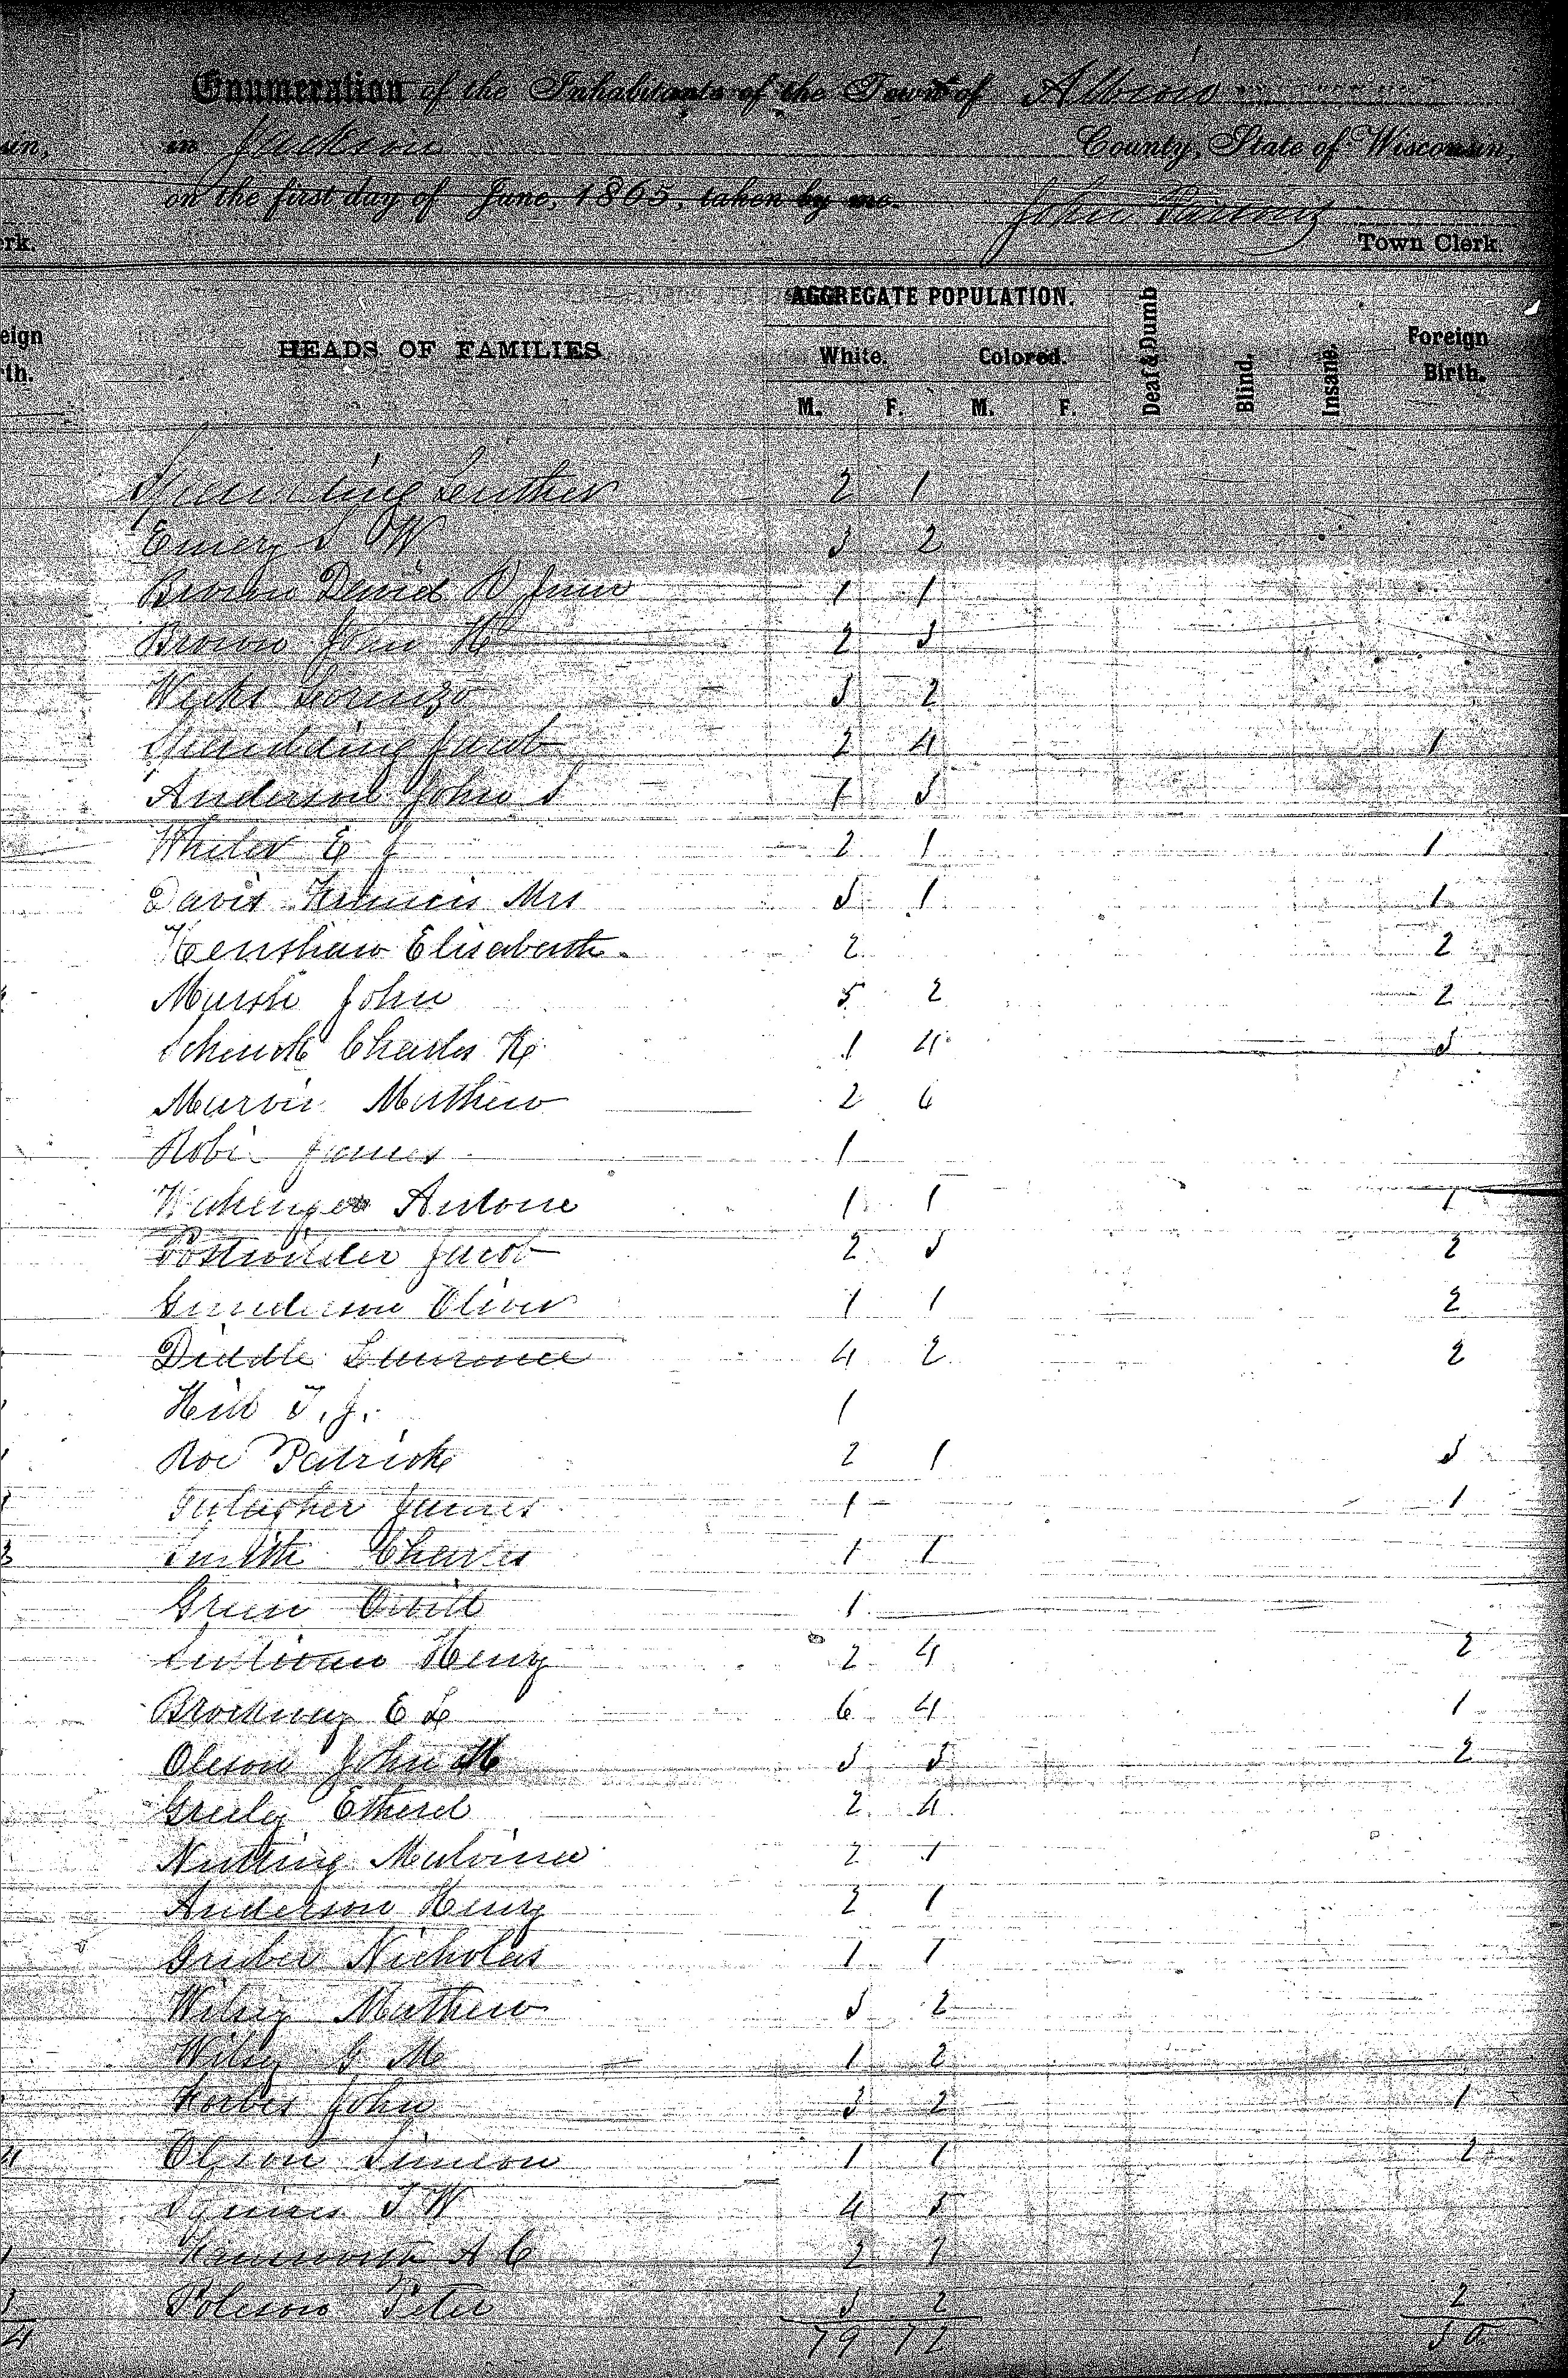 Enumeration of the Inhabitants of the Town of Albion
in Jackson County, State of Wisconsin,
on the first day of June, 1865, taken by me. John Parsons
Town Clerk.
HEADS OF FAMILIES
AGGREGATE POPULATION.
White. Colored.
M. F. M. F.
Deaf & Dumb
Blind.
Insane.
Foreign Birth.
Spaulding Luther 2 1
Emery S W 3 2
Brown David D 1 1
Brown John H 2 3
Weeks Lorenzo 3 2
Spaulding Jacob 2 4 1
Anderson John S 1 3
E J 2 1 1
Davis Francis Mrs 3 1 1
Henshaw Elisabeth 2 2
Marsh John 5 2 2
Schenck Charles H 1 4 3
Marvin Mathew 2 6
James 1
Antone 1 1 1
Jacob 2 3 2
Gunderson Oliver 1 1 2
Diddle Lawrence 4 2 2
Hill T. J. 1
Roe Patrick 2 1 3
James 1 1
Smith Charles 1 1
Green 1
Sullivan Henry 2 4 2
Brockway E L 6 4 1
Oleson John M 3 3 2
Greely 2 4
Nutting Malvina 2 1
Anderson Henry 2 1
Gruber Nicholas 1 1
Wilsey Mathew 3 2
Wilsey G M 1 2
John 3 2 1
Olson Simeon 1 1 2
T W 4 5
A C 2 1
Poleson Peter 3 2 2
79 72 30